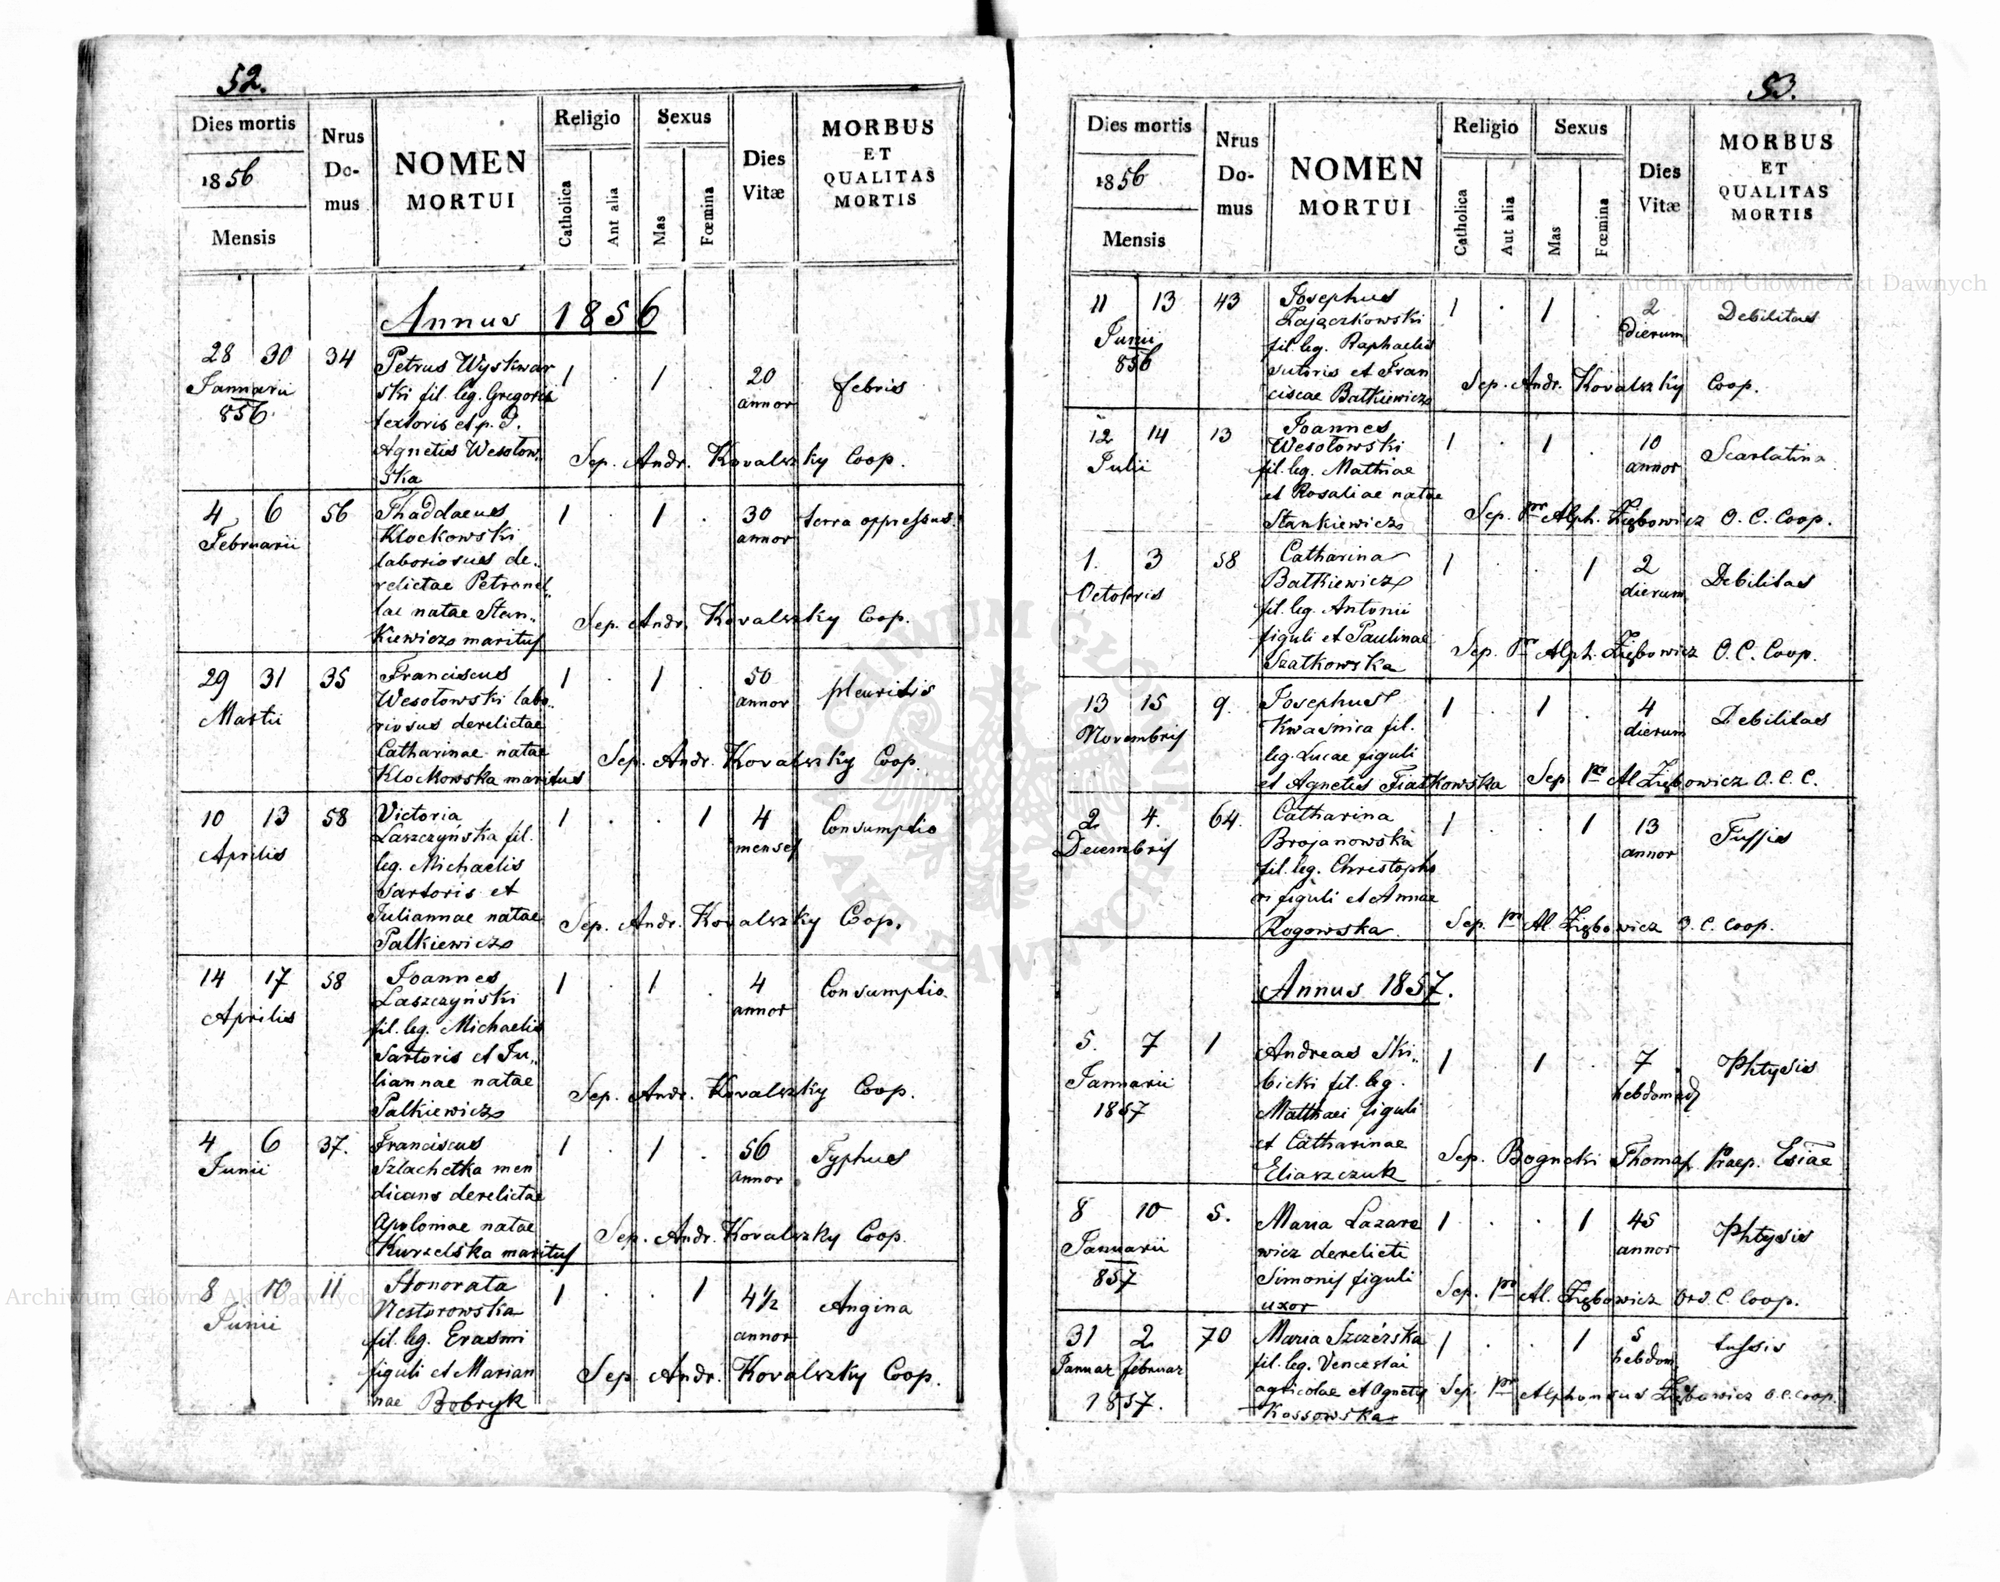 52.
Dies mortis
1856
Mensis
Nrus
Do-
mus
NOMEN
MORTUI
Religio
Catholica
Aut alia
Sexus
Mas
Fœmina
Dies
Vitæ
MORBUS
ET
QUALITAS
MORTIS
Annus 1856
28 30 34 Petrus Wyskwar
Januarii ski fil. leg. Gregorii 1 . 1 . 20 febris
856. textoris et p. d. annor
Agnetis Wesołow.
ska Sep. Andr. Kovalszky Coop.
4 6 56 Thaddaeus 1 . 1 . 30 terra oppressus
Februarii Klockowski annor
laboriosus de-
relictae Petronel-
lae natae Stan-
kiewicz maritus Sep. Andr. Kovalszky Coop.
29 31 35 Franciscus 1 . 1 . 50 pleuritis
Martii Wesołowski labo- annor
riosus derelictae
Catharinae natae
Klockowska maritus Sep. Andr. Kovalszky Coop.
10 13 58 Victoria 1 . . 1 4 Consumptio
Aprilis Laszczyńska fil. menses
leg. Michaelis
Sartoris et
Juliannae natae
Palkiewicz Sep. Andr. Kovalszky Coop.
14 17 58 Joannes 1 . 1 . 4 Consumptio.
Aprilis Laszczyński annor
fil. leg. Michaelis
Sartoris et Ju-
liannae natae
Palkiewicz Sep. Andr. Kovalszky Coop.
4 6 37. Franciscus 1 . 1 . 56 Typhus
Junii Szlachetka men annor
dicans derelictae
Apoloniae natae
Kurzelska maritus Sep. Andr. Kovalszky Coop.
8 10 11 Honorata 1 . . 1 4½ Angina
Junii Nestorowska annor
fil. leg. Erasmi
figuli et Marian
nae Bobryk Sep. Andr. Kovalszky Coop.
53.
Dies mortis
1856
Mensis
Nrus
Do-
mus
NOMEN
MORTUI
Religio
Catholica
Aut alia
Sexus
Mas
Fœmina
Dies
Vitæ
MORBUS
ET
QUALITAS
MORTIS
11 13 43 Josephus 1 . 1 . 2 Debilitas
Junii Zajączkowski dierum
856 fil. leg. Raphaelis
sutoris et Fran
ciscae Batkiewicz Sep. Andr. Kovalszky Coop.
12 14 13 Joannes 1 . 1 . 10 Scarlatina
Julii Wesołowski annor
fil. leg. Mathiae
et Rosaliae natae
Stankiewicz Sep. pr Alph. Ziębowicz O. C. Coop.
1. 3 58 Catharina 1 . . 1 2 Debilitas
Octobris Batkiewicz dierum
fil. leg. Antonii
figuli et Paulinae
Szatkowska Sep. pr Alph. Ziębowicz O. C. Coop.
13 15 9. Josephus 1 . 1 . 4 Debilitas
Novembris Kwaśnica fil. dierum
leg. Lucae figuli
et Agnetis Fiałkowska Sep. pr Al. Ziębowicz O. C. C.
2 4. 64. Catharina 1 . . 1 13 Tussis
Decembris Brojanowska annor
fil. leg. Christopho
ri figuli et Annae
Rogowska. Sep. pr Al. Ziębowicz O. C. Coop.
Annus 1857.
5. 7 1 Andreas Ski- 1 . 1 . 7 Phtysis
Januarii bicki fil. leg. hebdomad
1857 Matthaei figuli
et Catharinae
Eliaszczuk Sep. Bogncki Thomas Praep. Esiae
8 10 5. Maria Lazare 1 . . 1 45 Phtysis
Januarii wicz derelicti annor
857 Simonis figuli
uxor Sep. pr Al. Ziębowicz Ord. C. Coop.
31 2 70 Maria Szczérska 1 . . 1 5 tussis
Januar februar fil. leg. Venceslai hebdom
1857. agricolae et Agnetis
Kossowska Sep. pr Alphonsus Ziębowicz O. C. Coop.
Archiwum Główne Akt Dawnych
Archiwum Główne Akt Dawnych
ARCHIWUM GŁÓWNE AKT DAWNYCH